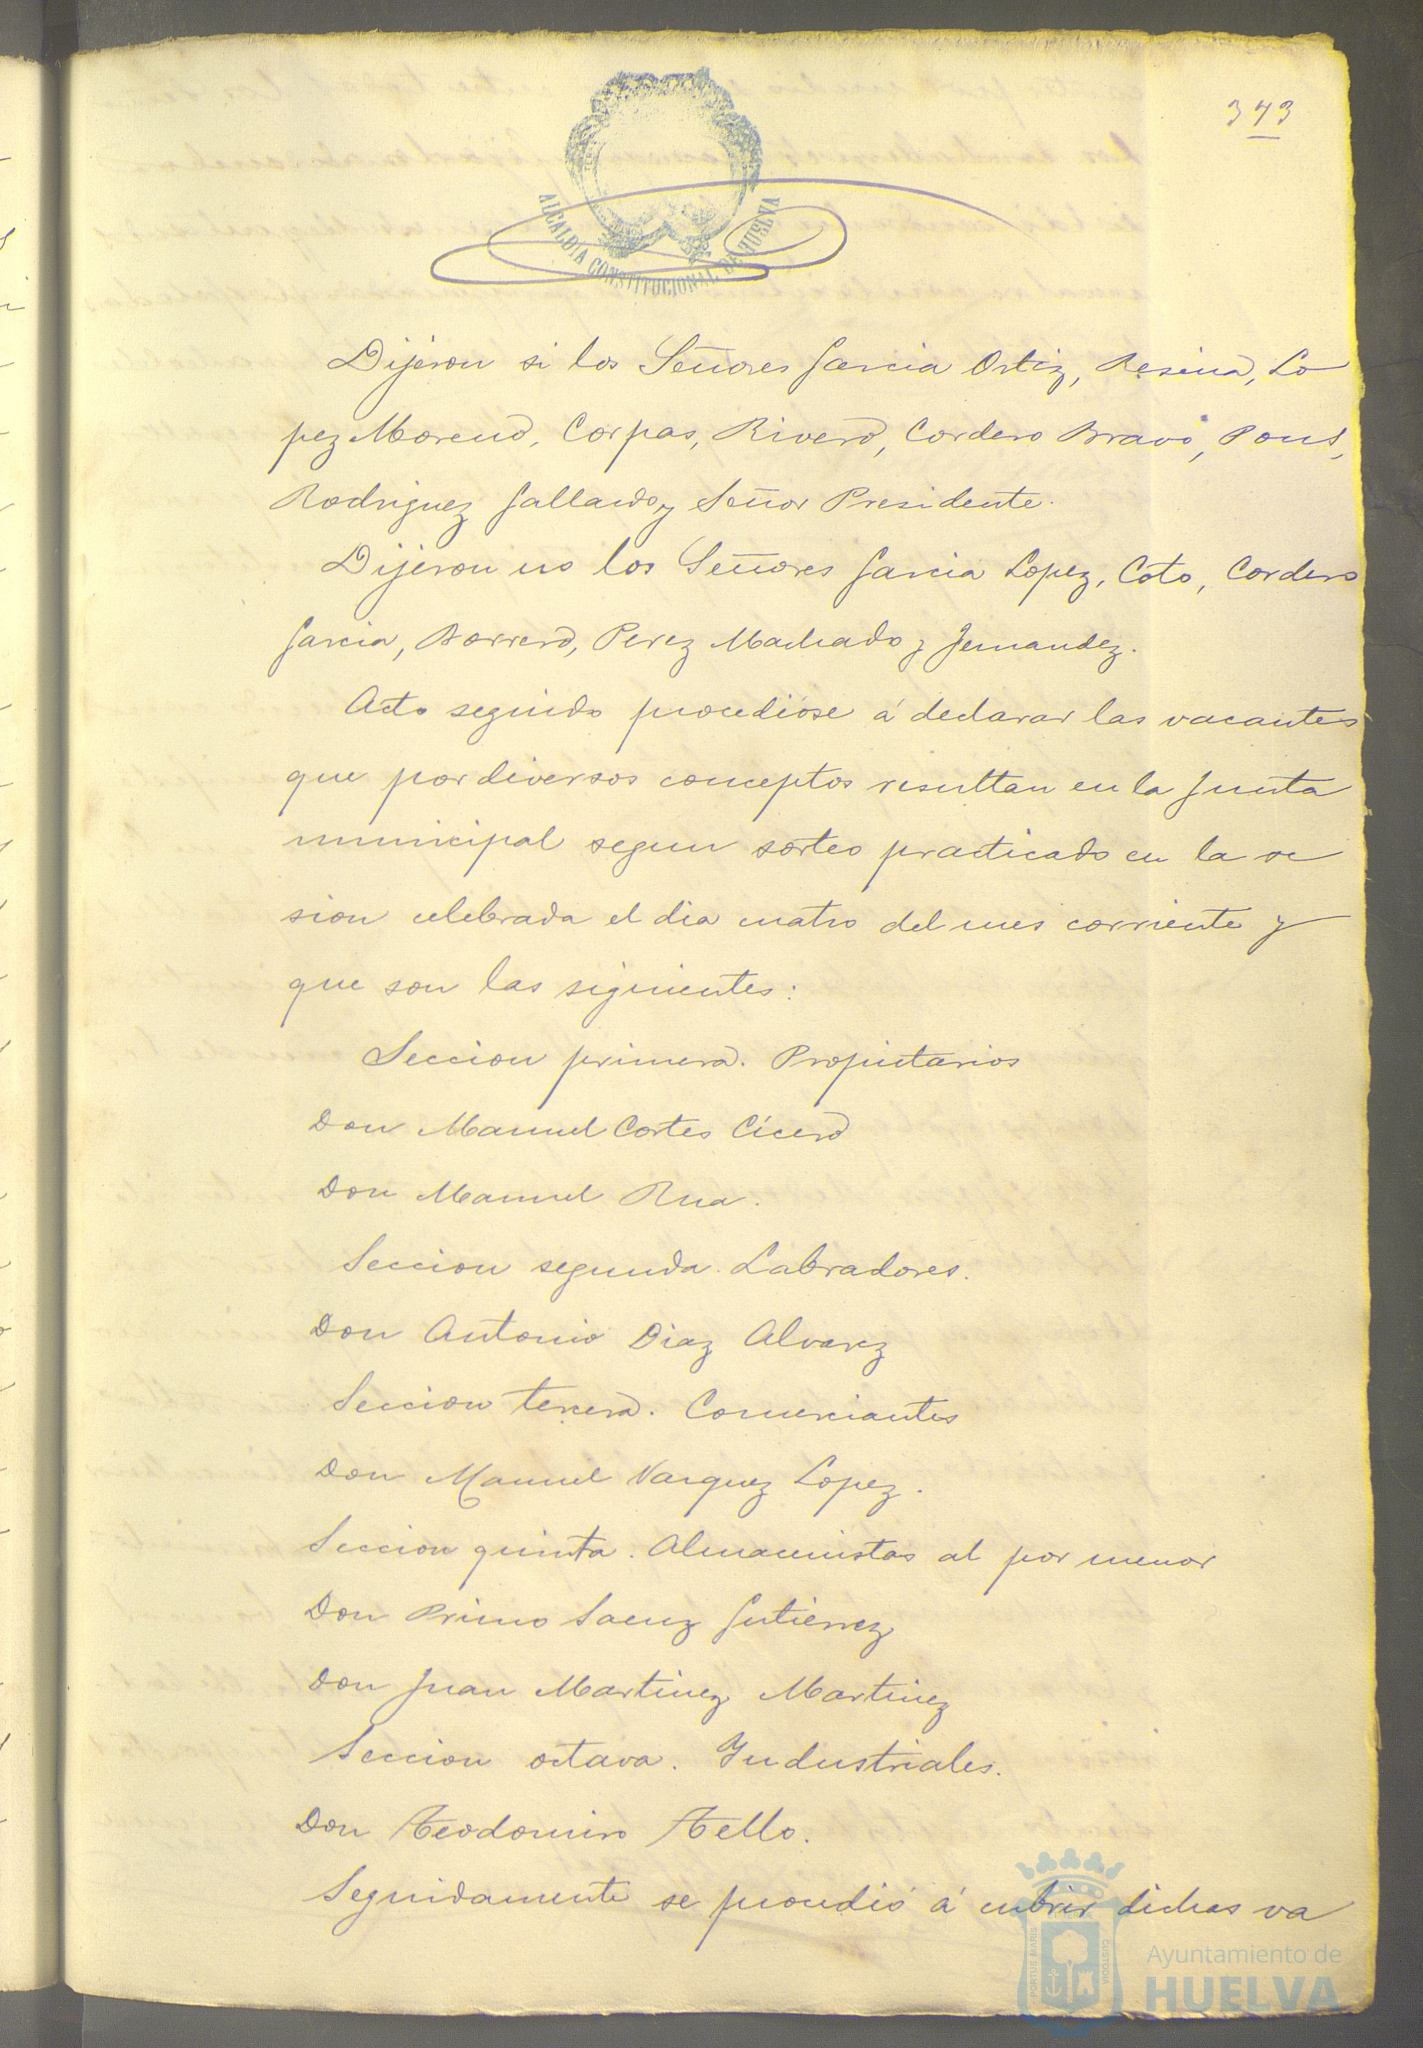 373
ALCALDIA CONSTITUCIONAL DE HUELVA
Dijeron si los Señores Garcia Ortiz, Resina, Lo
pez Moreno, Corpas, Rivero, Cordero Bravo, Pons,
Rodriguez Gallardo y Señor Presidente.
Dijeron no los Señores Garcia Lopez, Coto, Cordero
Garcia, Borrero, Perez Machado y Fernandez.
Acto seguido procedióse á declarar las vacantes
que por diversos conceptos resultan en la Junta
municipal segun sorteo practicado en la se
sion celebrada el dia cuatro del mes corriente y
que son las siguientes:
Seccion primera. Propietarios
Don Manuel Cortes Cícero
Don Manuel Rua.
Seccion segunda. Labradores.
Don Antonio Diaz Alvarez
Seccion tercera. Comerciantes
Don Manuel Vazquez Lopez.
Seccion quinta. Almacenistas al por menor
Don Primo Saenz Gutierrez
Don Juan Martinez Martinez
Seccion octava. Industriales.
Don Teodomiro Tello.
Seguidamente se procedió á cubrir dichas va
PORTUS MARIS
CUSTODIA
Ayuntamiento de
HUELVA